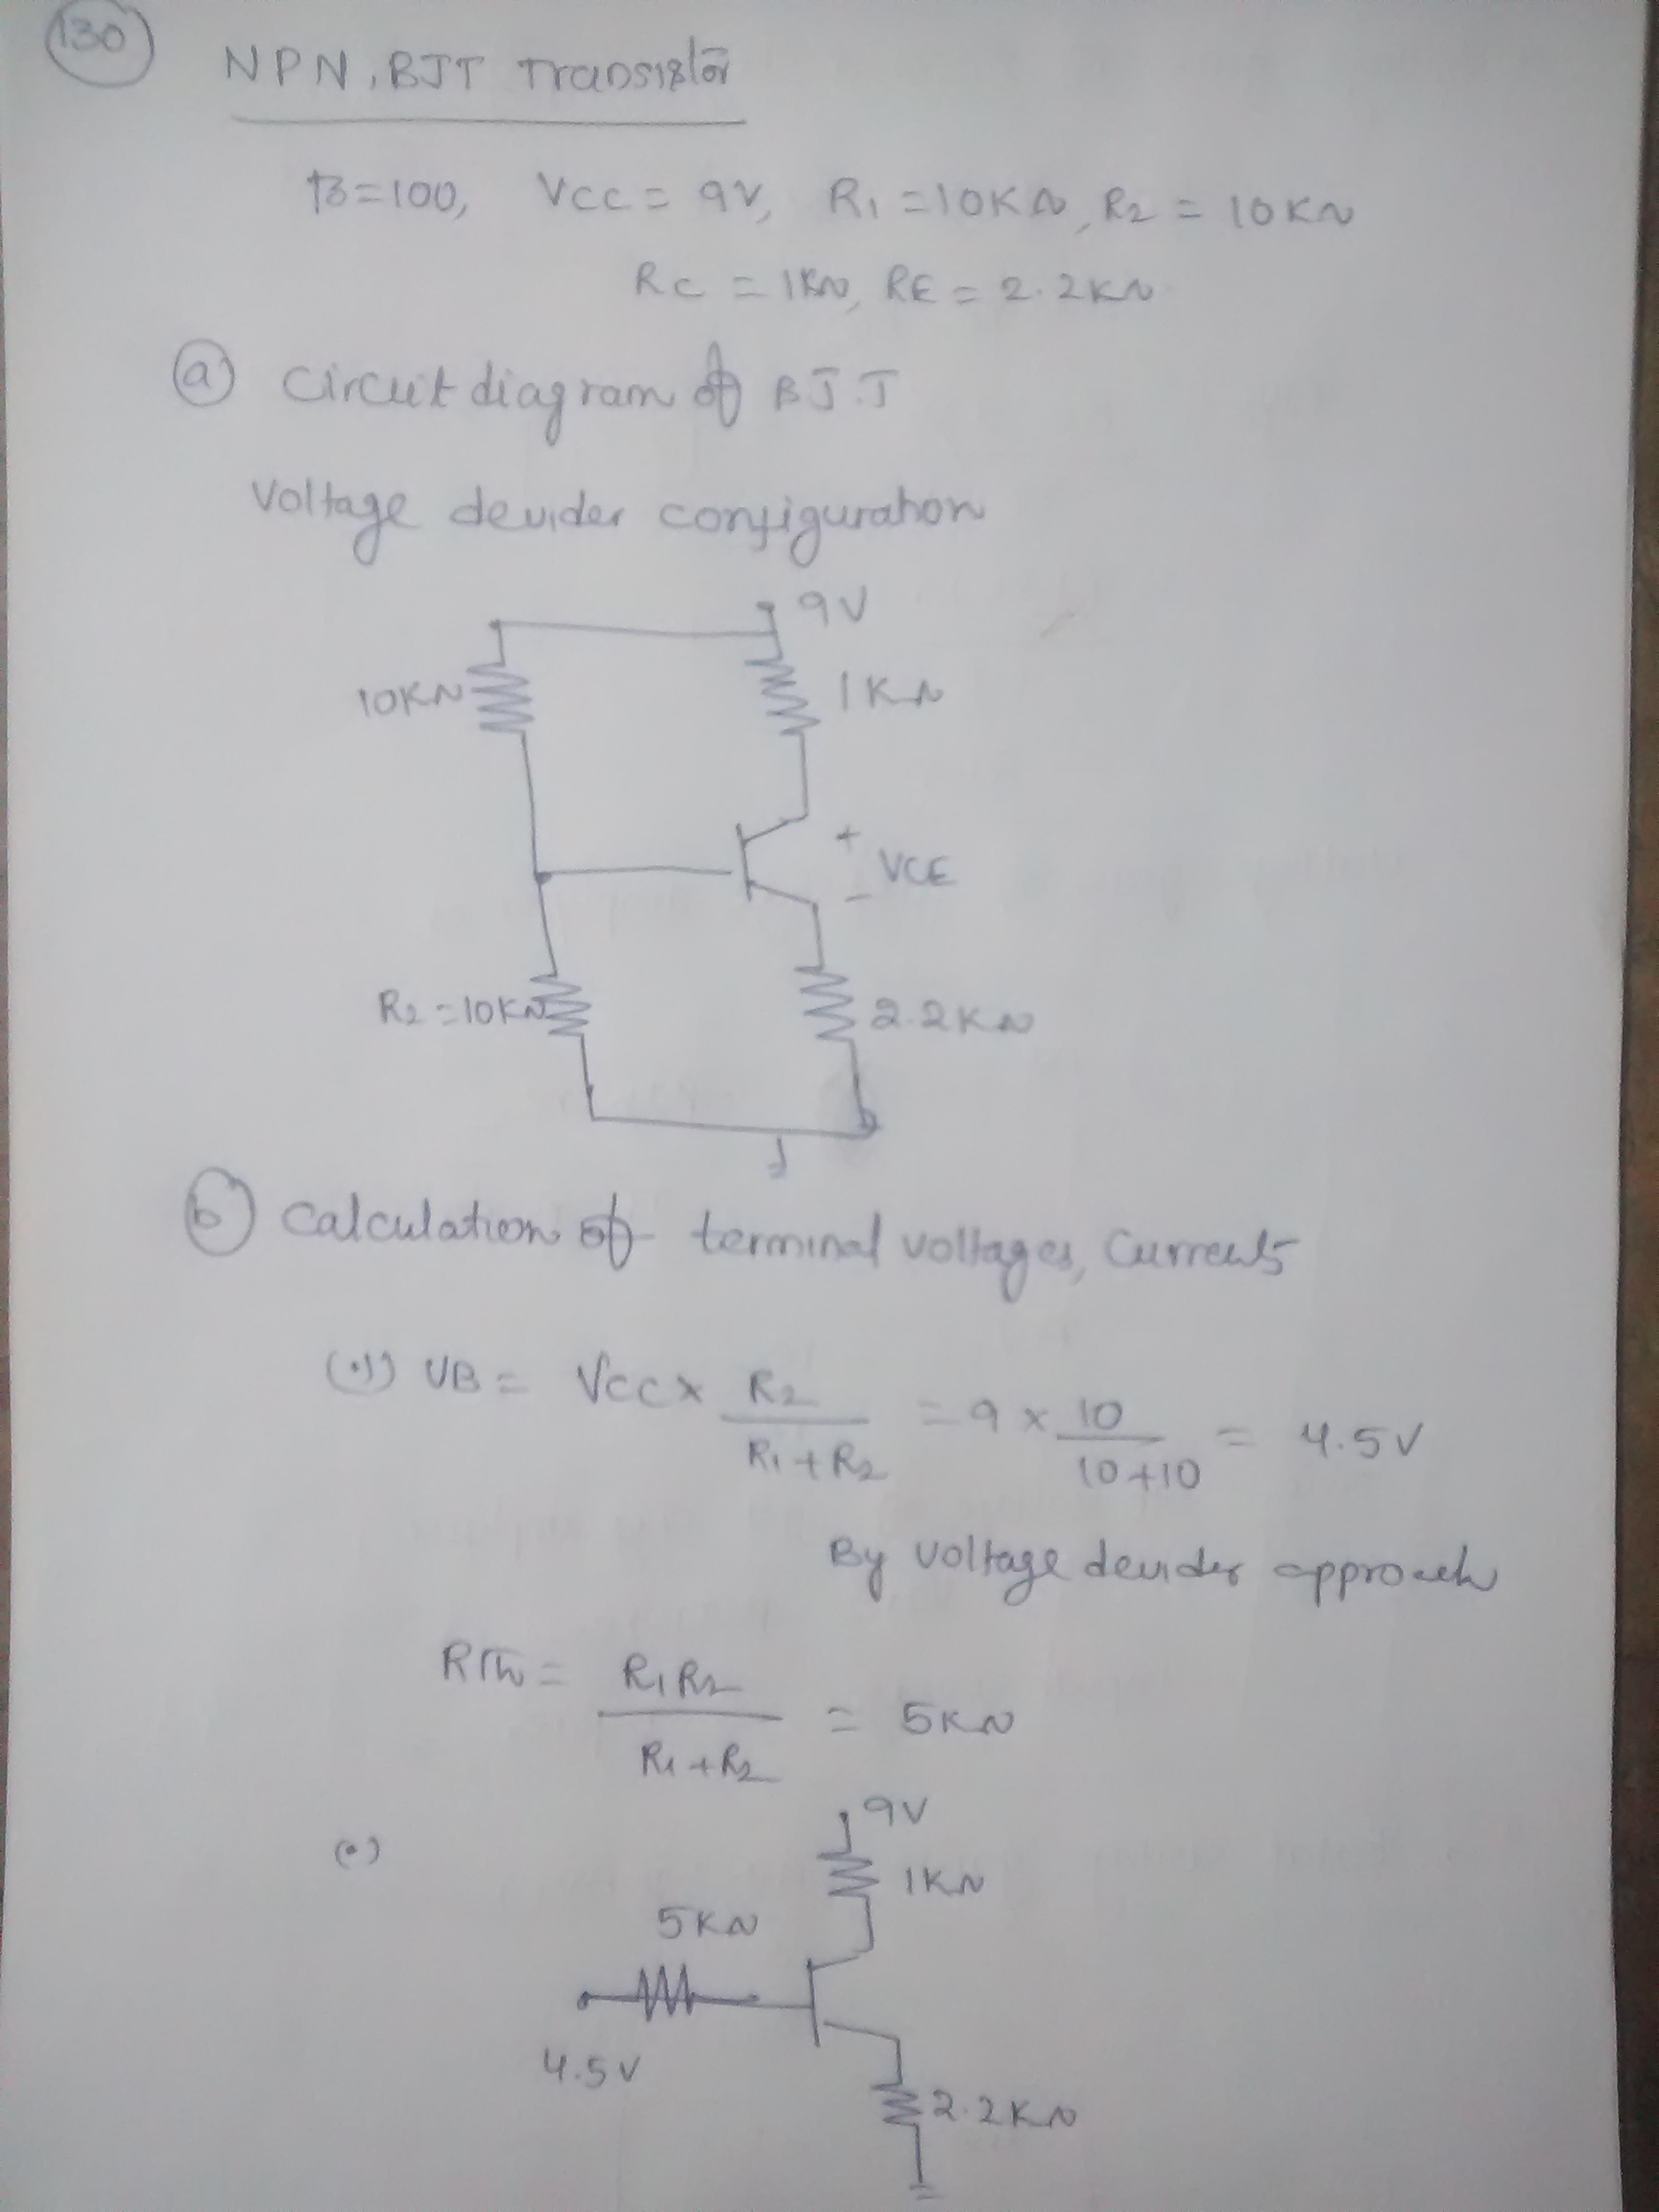 130
NPN, BJT Transistor
β=100, VCC = 9V, R1 =10KΩ, R2 = 10KΩ
RC = 1KΩ, RE = 2.2KΩ
(a) Circuit diagram of BJT
Voltage devider configuration
9V
10KΩ
1KΩ
+
VCE
-
R2=10KΩ
2.2KΩ
(b) Calculation of terminal voltages, Currents
(•)) VB = VCC x R2 / R1+R2 = 9 x 10 / 10+10 = 4.5V
By voltage devider approach
RTh = R1R2 / R1+R2 = 5KΩ
(•)
9V
1KΩ
5KΩ
4.5V
2.2KΩ